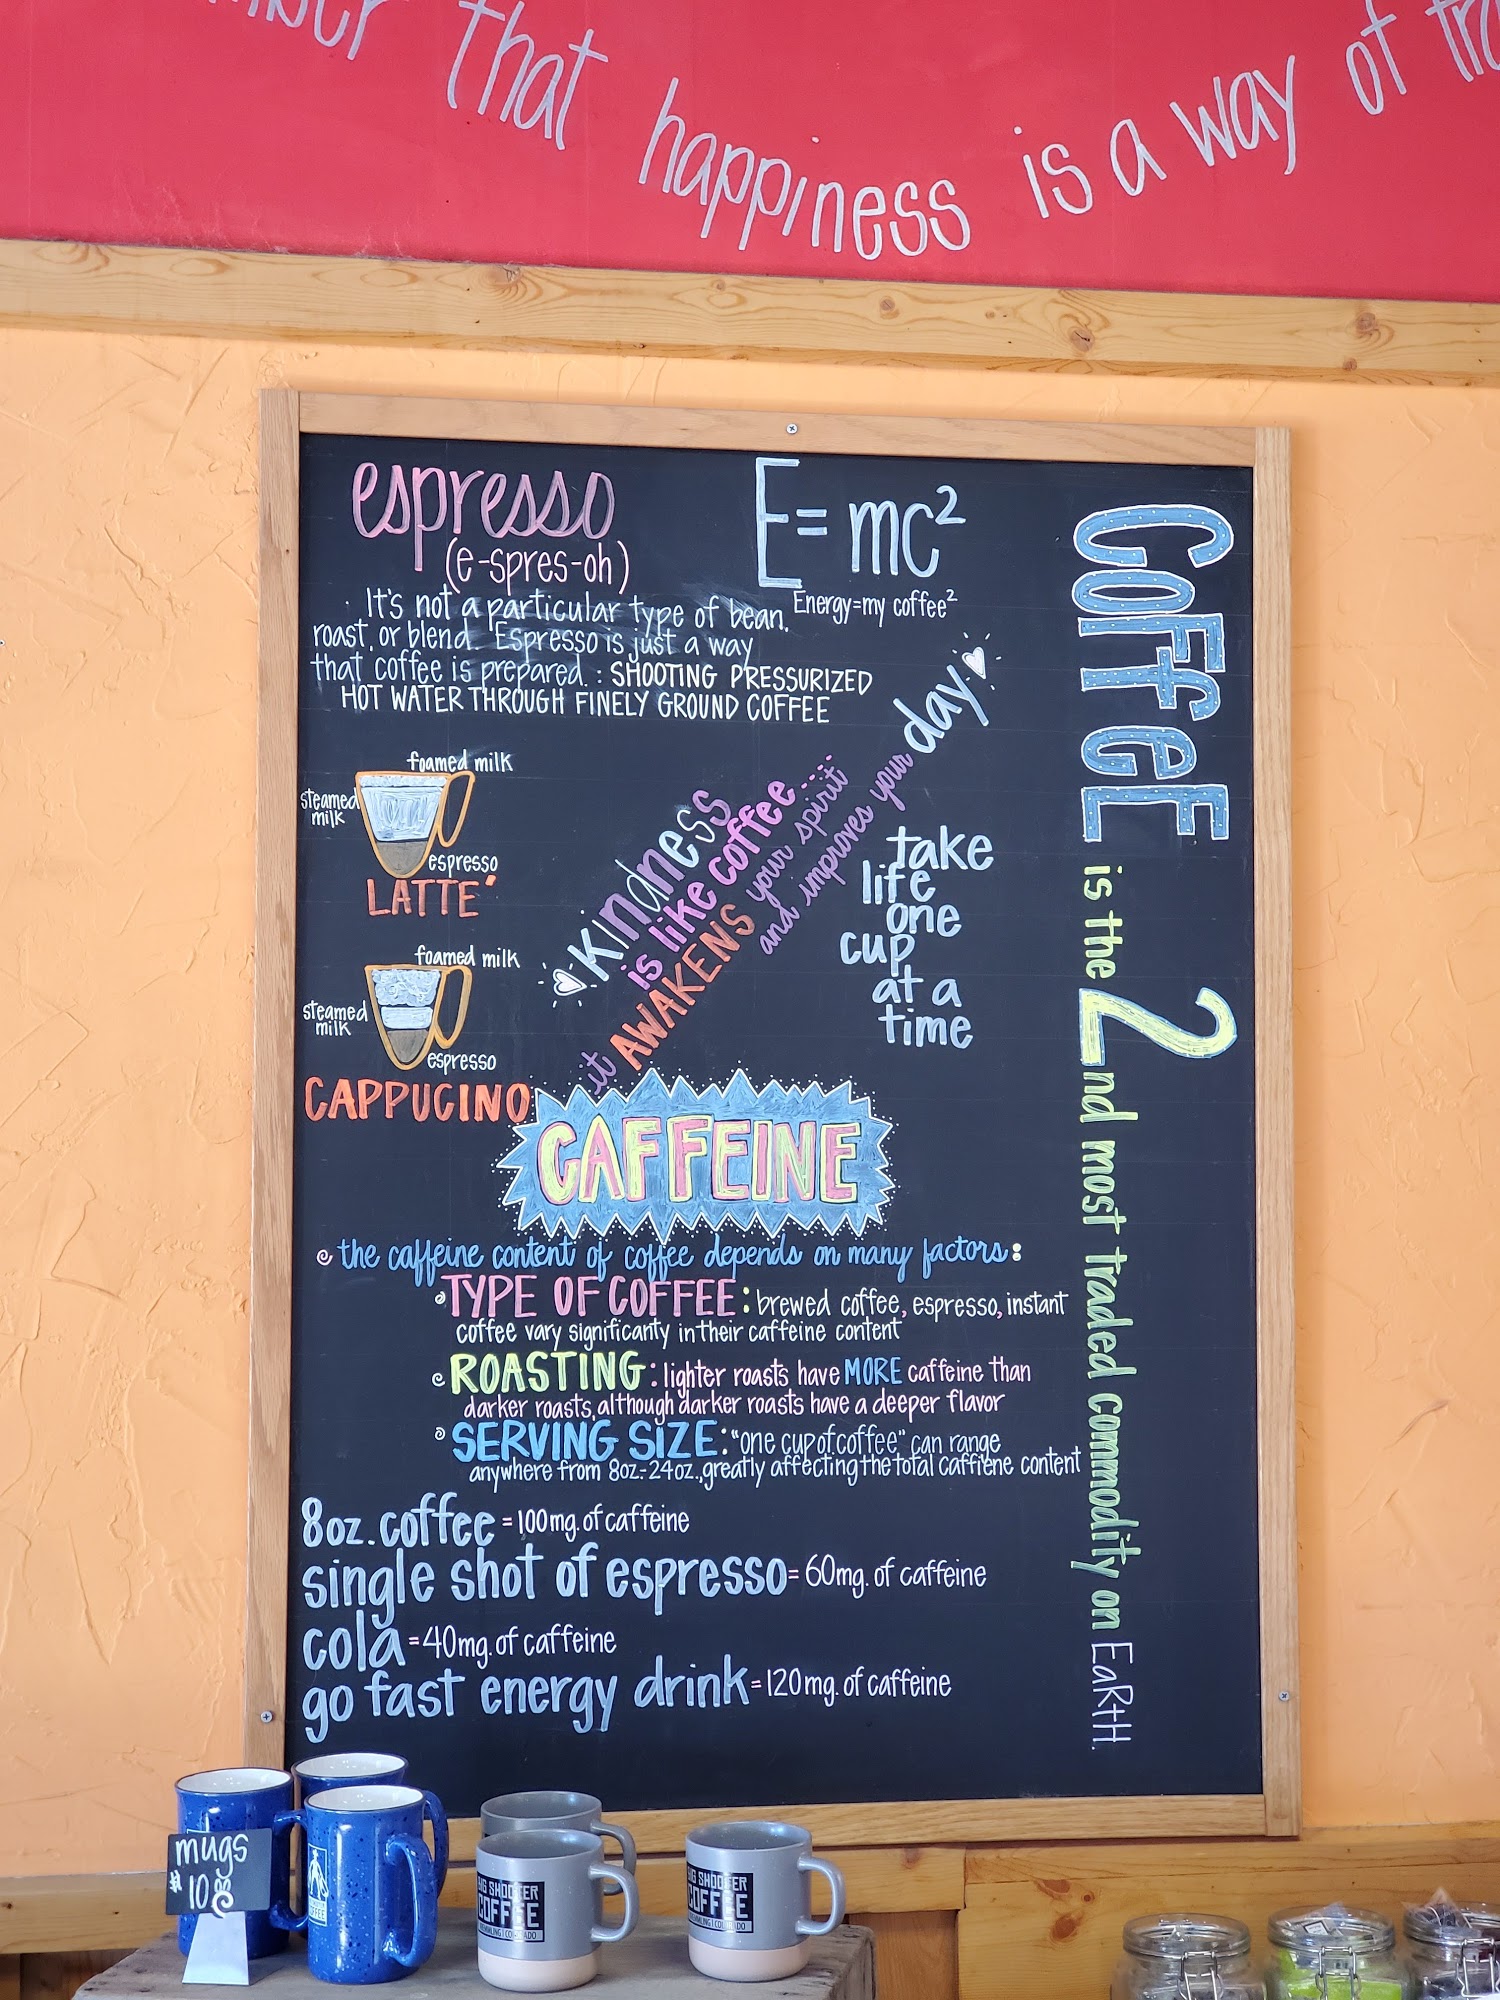 that happiness is a way of
espresso
(e-spres-oh)
It's not a particular type of bean,
roast, or blend. Espresso is just a way
that coffee is prepared. : SHOOTING PRESSURIZED
HOT WATER THROUGH FINELY GROUND COFFEE
E=mc²
Energy=my coffee²
foamed milk
steamed
milk
espresso
LATTE´
foamed milk
steamed
milk
espresso
CAPPUCINO
kindness
is like coffee.....
it AWAKENS your spirit
and improves your day
take
life
one
cup
at a
time
COFFEE is the 2nd most traded commodity on EARTH.
CAFFEINE
the caffeine content of coffee depends on many factors:
TYPE OF COFFEE: brewed coffee, espresso, instant
coffee vary significanty in their caffeine content
ROASTING: lighter roasts have MORE caffeine than
darker roasts, although darker roasts have a deeper flavor
SERVING SIZE: "one cup of coffee" can range
anywhere from 8oz.-24oz., greatly affecting the total caffiene content
8oz. coffee = 100mg. of caffeine
single shot of espresso = 60mg. of caffeine
cola = 40mg. of caffeine
go fast energy drink = 120mg. of caffeine
mugs
$10
COFFEE
BIG SHOOTER
COFFEE
COLORADO